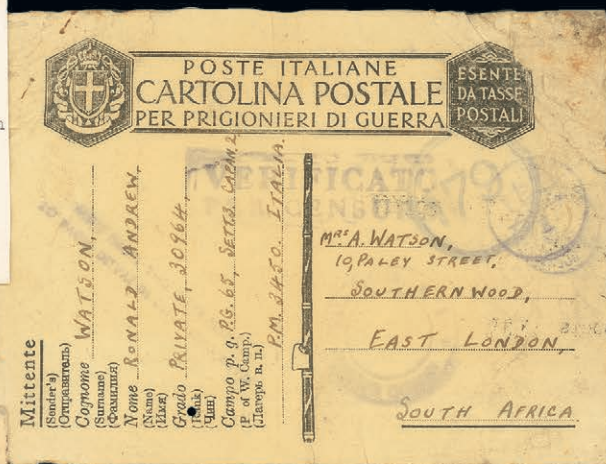 POSTE ITALIANE
CARTOLINA POSTALE
PER PRIGIONIERI DI GUERRA
ESENTE
DA TASSE
POSTALI
VERIFICATO
CENSURA
Mittente
(Sender's)
(Отправитель)
Cognome WATSON,
(Surname)
(Фамилия)
Nome RONALD ANDREW,
(Name)
(Имя)
Grado PRIVATE, 30964,
(Rank)
(Чин)
Campo p. g. P.G. 65, SETT.
(P of W. Camp.)
(Лагерь в. п.)
P.M. 3450. ITALIA.
MRS A. WATSON,
10, PALEY STREET,
SOUTHERNWOOD,
EAST LONDON,
SOUTH AFRICA